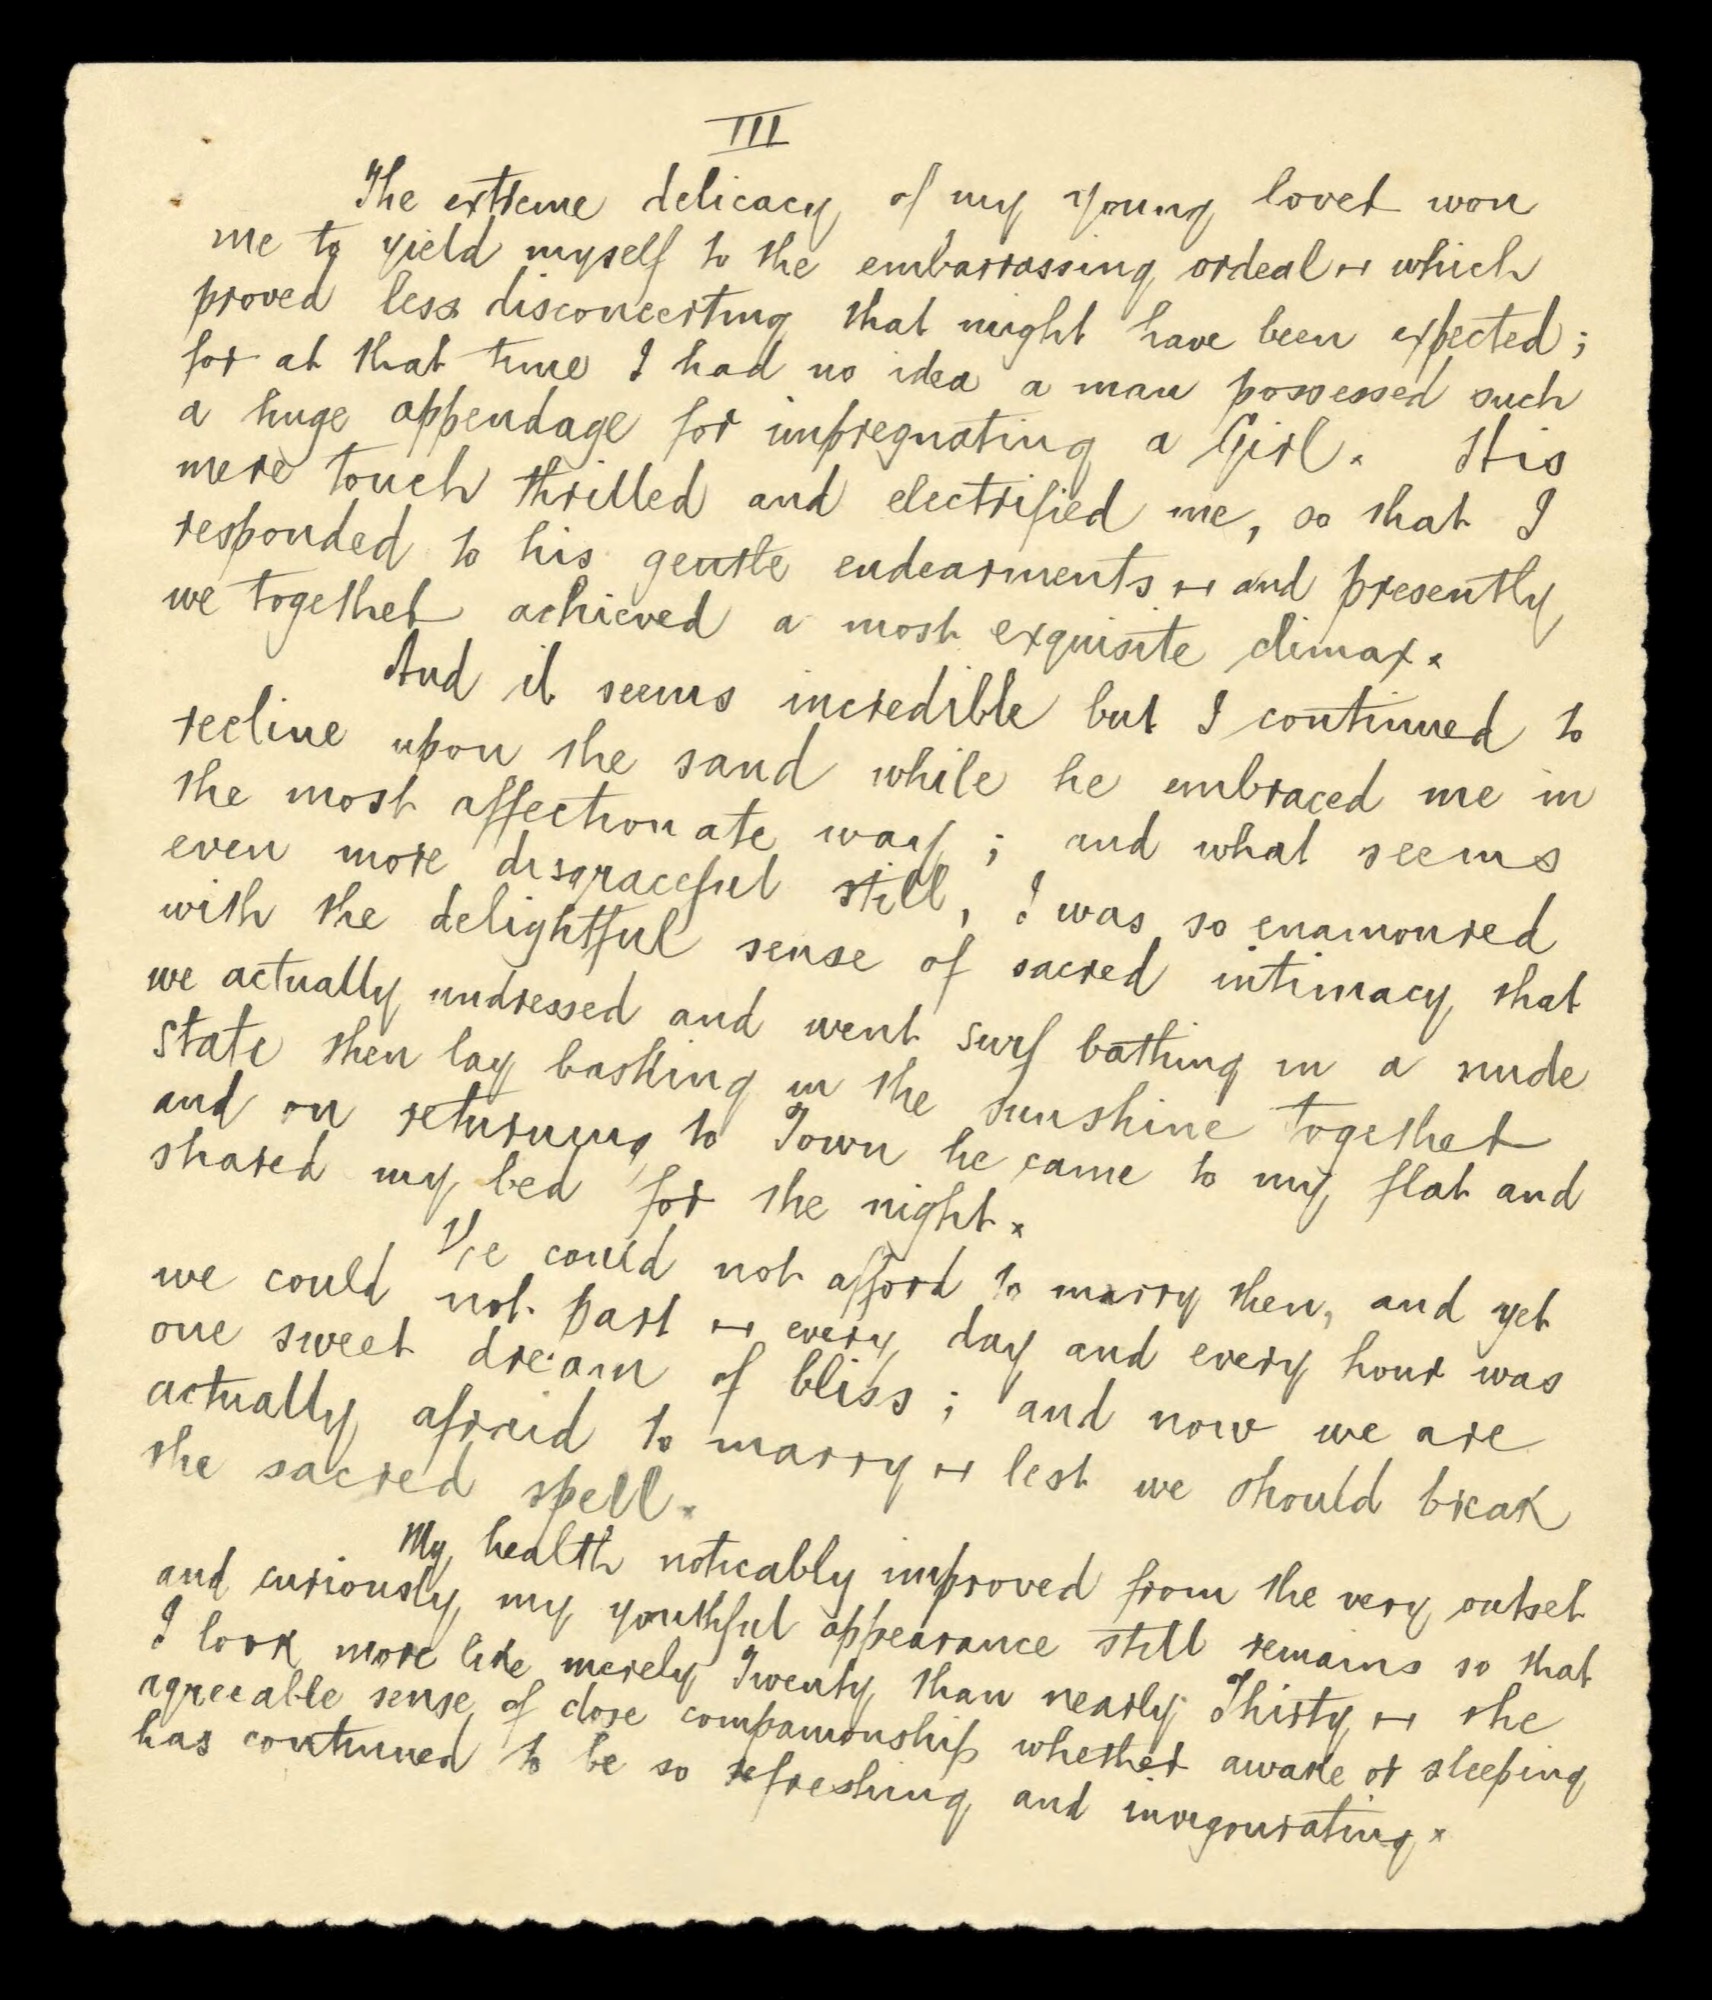 III
The extreme delicacy of my young lover won
me to yield myself to the embarrassing ordeal - which
proved less disconcerting that might have been expected;
for at that time I had no idea a man possessed such
a huge appendage for impregnating a Girl. His
mere touch thrilled and electrified me, so that I
responded to his gentle endearments - and presently
we together achieved a most exquisite climax.
And it seems incredible but I continued to
recline upon the sand while he embraced me in
the most affectionate way; and what seems
even more disgraceful still, I was so enamoured
with the delightful sense of sacred intimacy that
we actually undressed and went surf bathing in a nude
state then lay basking in the sunshine together
and on returning to Town he came to my flat and
shared my bed for the night.
We could not afford to marry then, and yet
we could not part - every day and every hour was
one sweet dream of bliss; and now we are
actually afraid to marry - lest we should break
the sacred spell.
My health noticably improved from the very outset
and curiously my youthful appearance still remains so that
I look more like merely Twenty than nearly Thirty - the
agreeable sense of close companionship whether awake or sleeping
has continued to be so refreshing and invigourating.